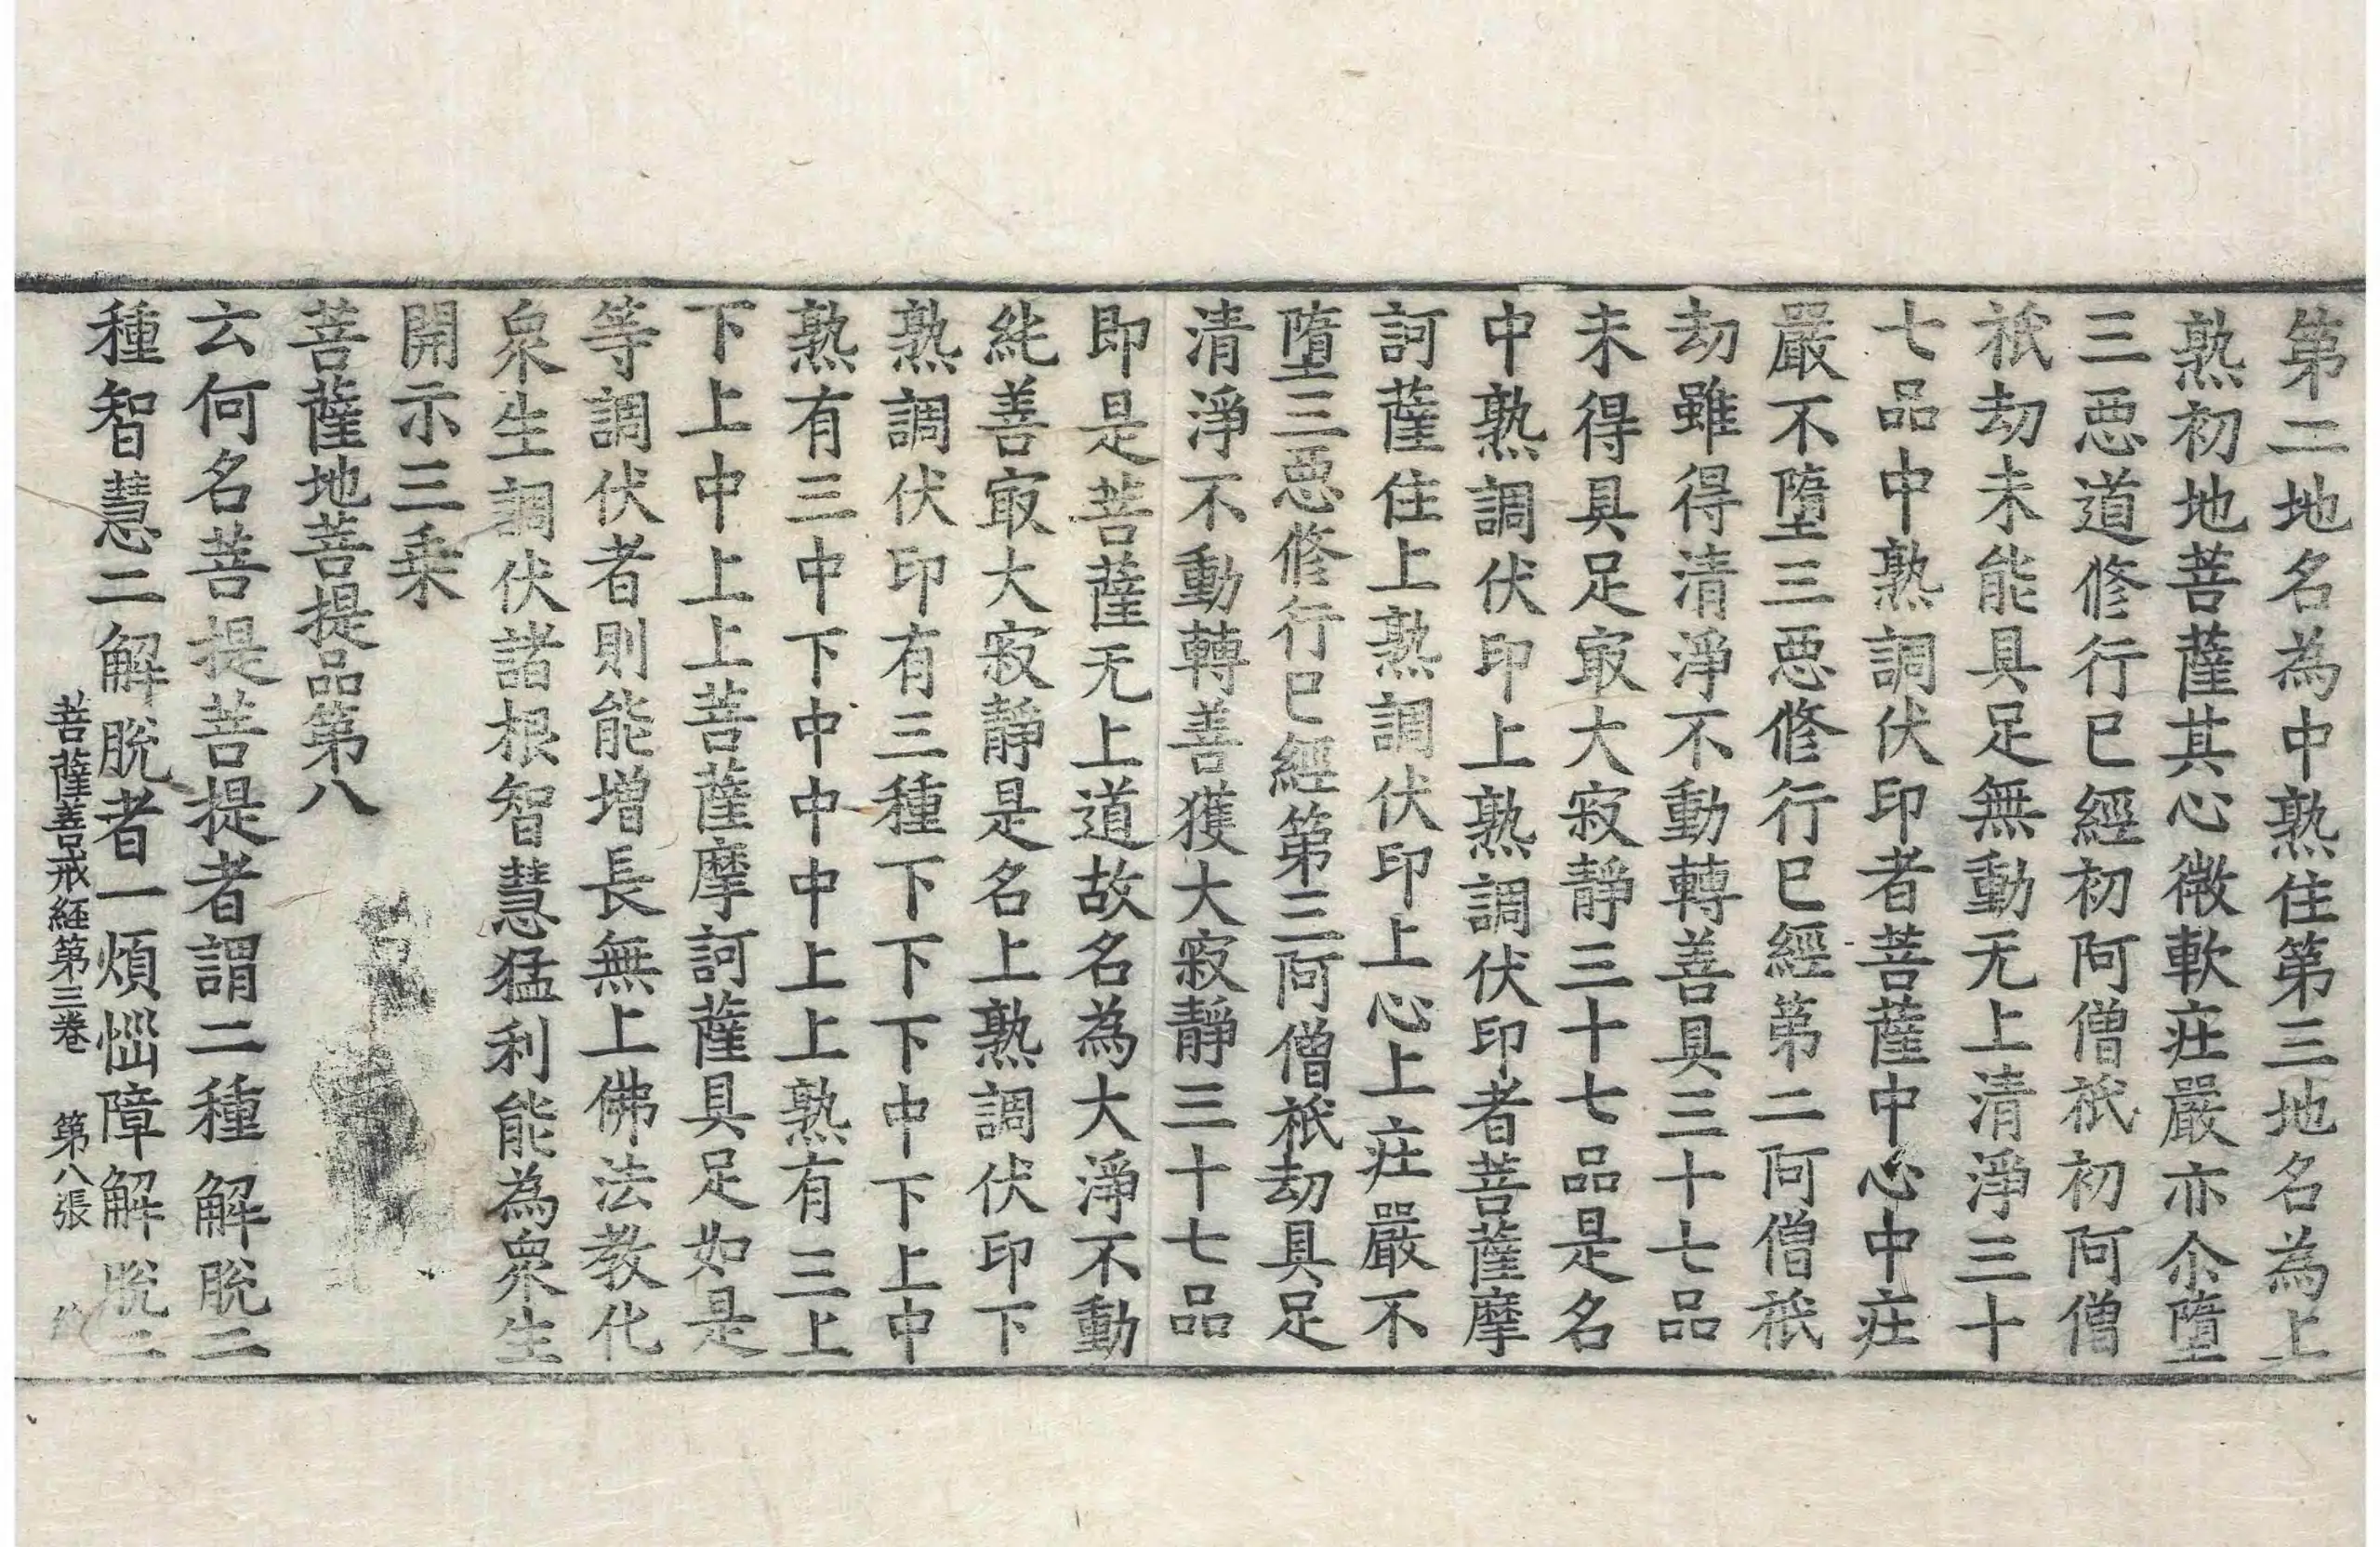 第二地名為中熟住第三地名為上
熟初地菩薩其心微軟疘嚴亦尒墮
三惡道修行已經初阿僧祇初阿僧
祇劫未能具足無動无上清淨三十
七品中熟調伏印者菩薩中心中疘
嚴不墮三惡修行已經第二阿僧祇
劫雖得清淨不動轉善具三十七品
未得具足㝡大寂靜三十七品是名
中熟調伏印上熟調伏印者菩薩摩
訶薩住上熟調伏印上心上疘嚴不
墮三惡修行已經第三阿僧祇劫具足
清淨不動轉善獲大寂靜三十七品
即是菩薩无上道故名為大淨不動
純善㝡大寂靜是名上熟調伏印下
熟調伏印有三種下下下中下上中
熟有三中下中中中上上熟有三上
下上中上上菩薩摩訶薩具足如是
等調伏者則能增長無上佛法教化
衆生調伏諸根智慧猛利能為衆生
開示三乗
菩薩地菩提品第八
云何名菩提菩提者謂二種解脫二
種智慧二解脫者一煩惱障解脫二
菩薩善戒經第三卷 第八張